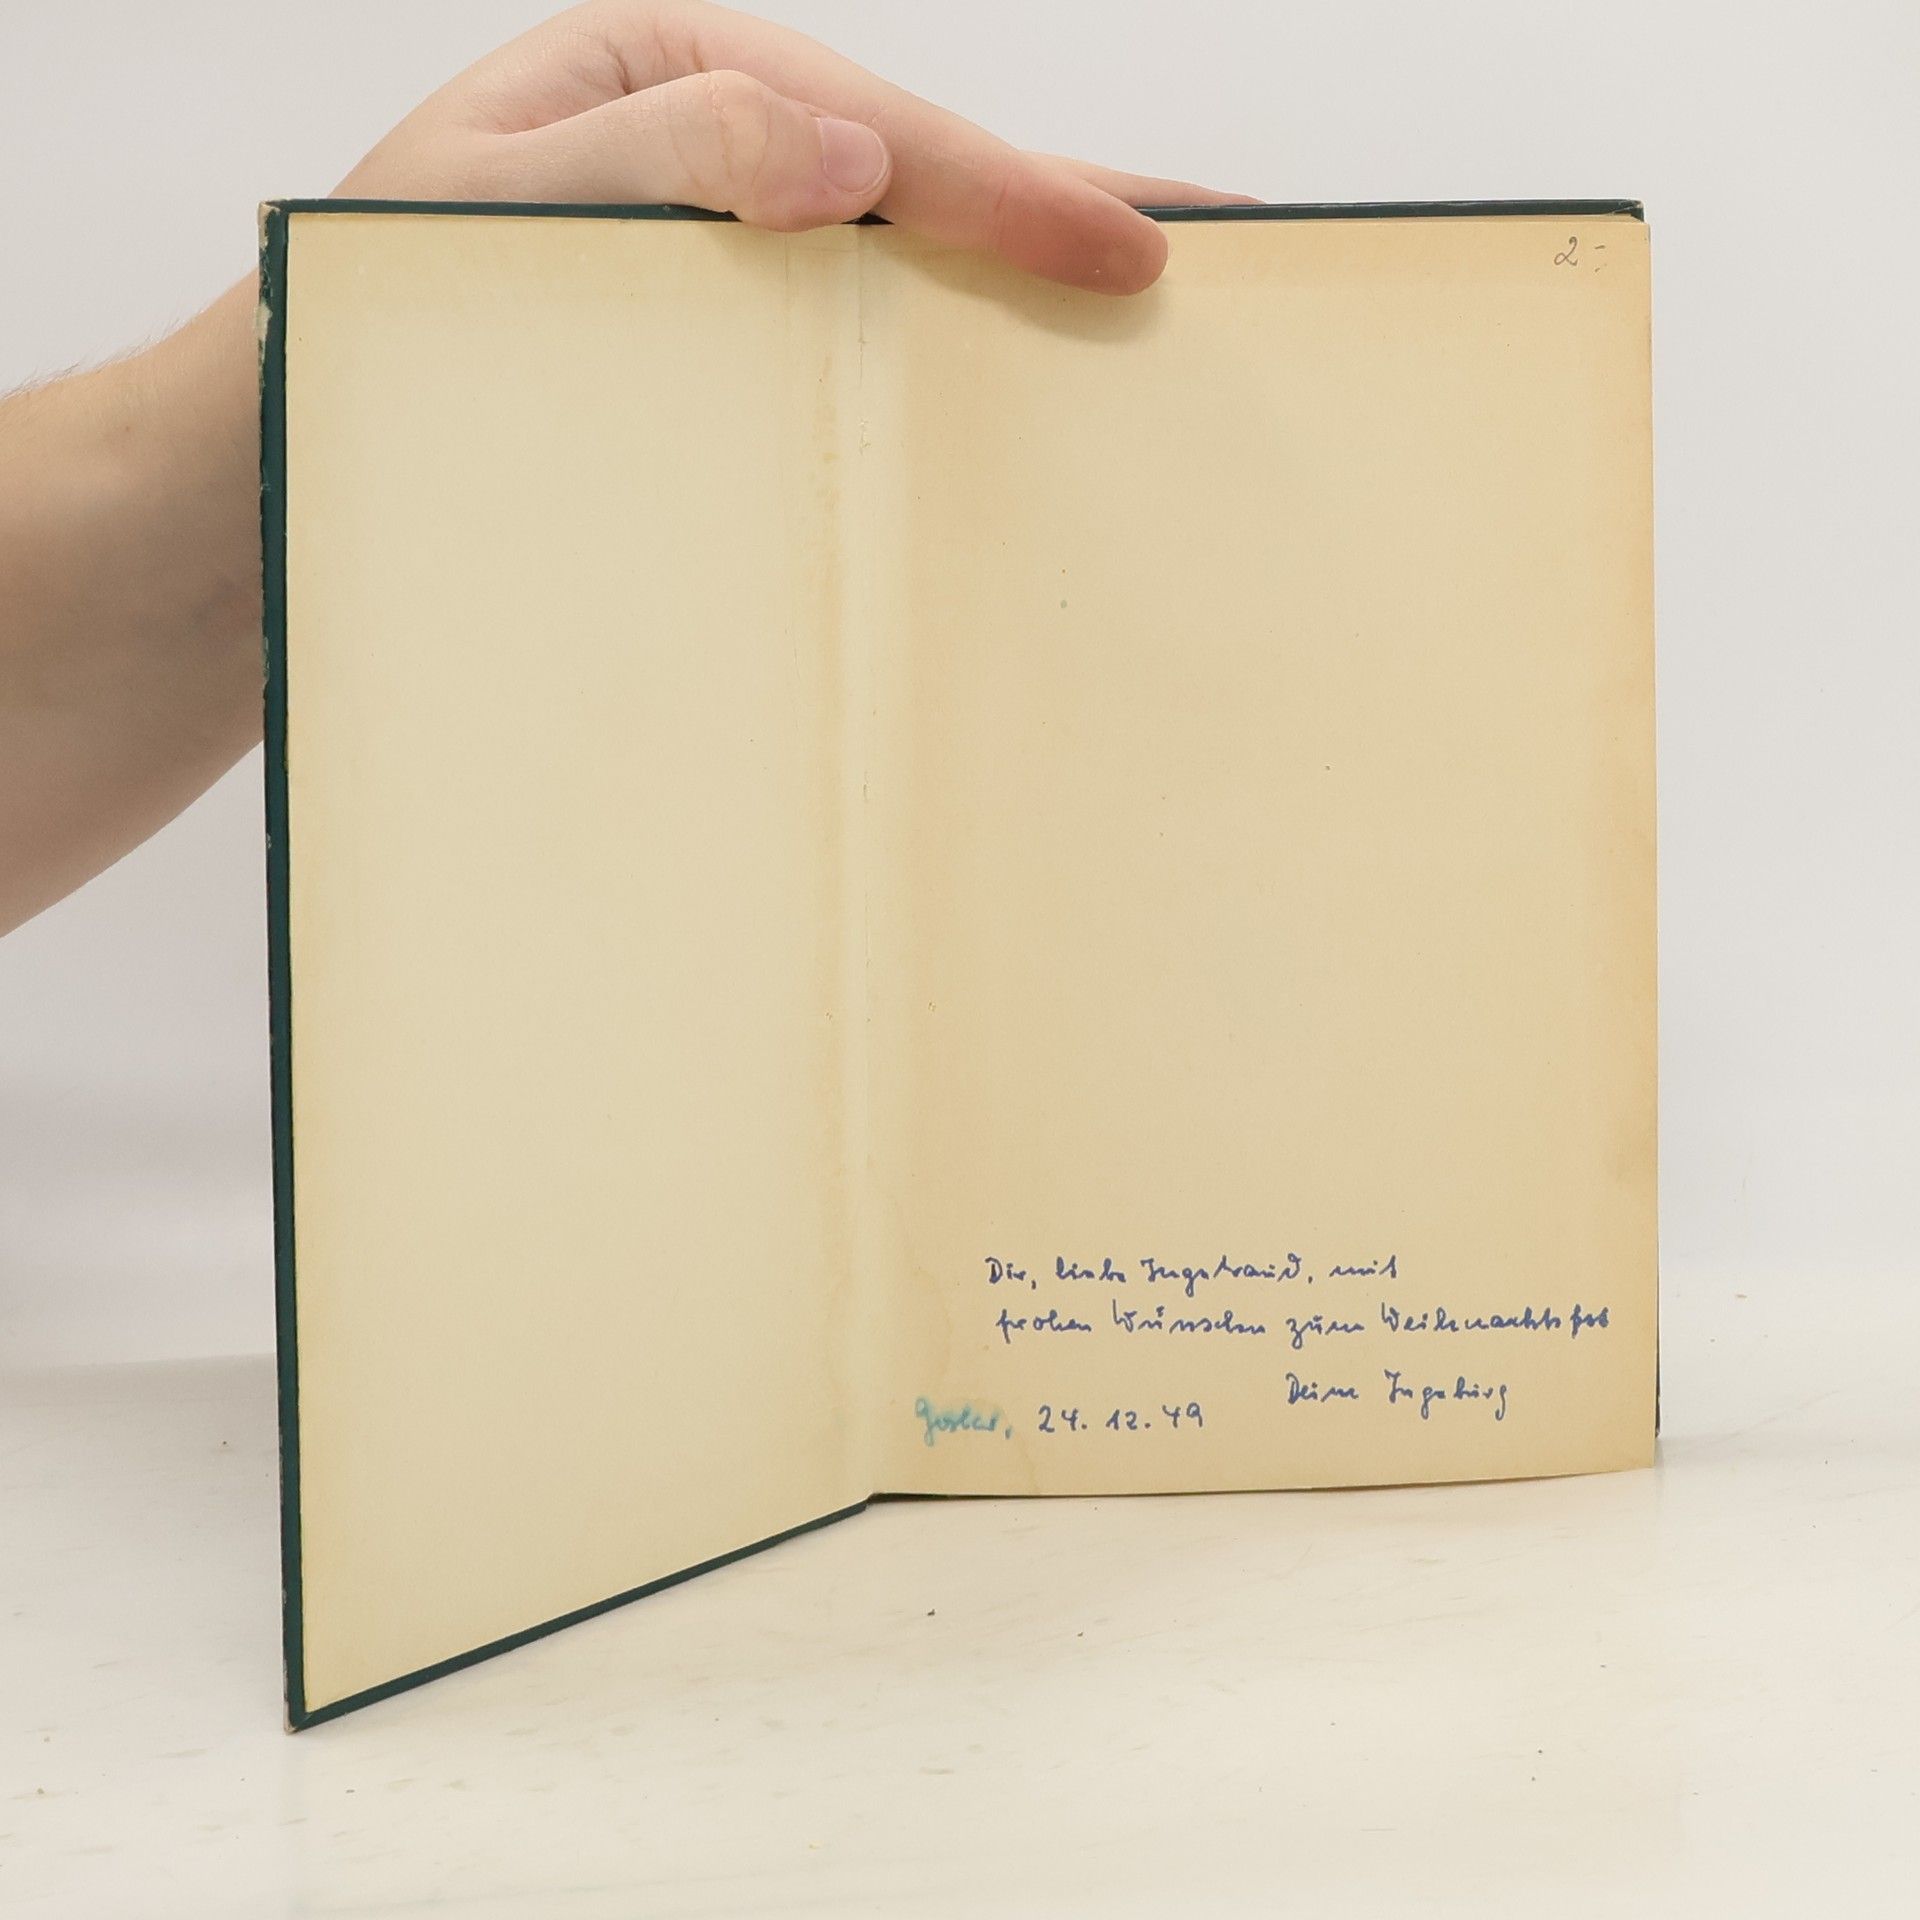 2.-
Dir, liebe Ingetraud, mit
frohen Wünschen zum Weihnachtsfest
Deine Ingeburg
Goslar, 24. 12. 49